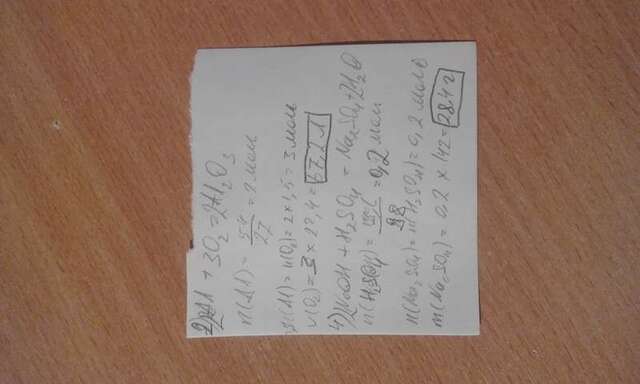 2) 2Al + 3O₂ = 2Al₂O₃
n(Al) = 54/27 = 2 моль
n(Al) = n(O₂) = 2 × 1,5 = 3 моль
V(O₂) = 3 × 22,4 = 67,2 л
4) 2NaOH + H₂SO₄ = Na₂SO₄ + 2H₂O
n(H₂SO₄) = /98 = 0,2 моль
n(Na₂SO₄) = n(H₂SO₄) = 0,2 моль
m(Na₂SO₄) = 0,2 × 142 = 28,4 г